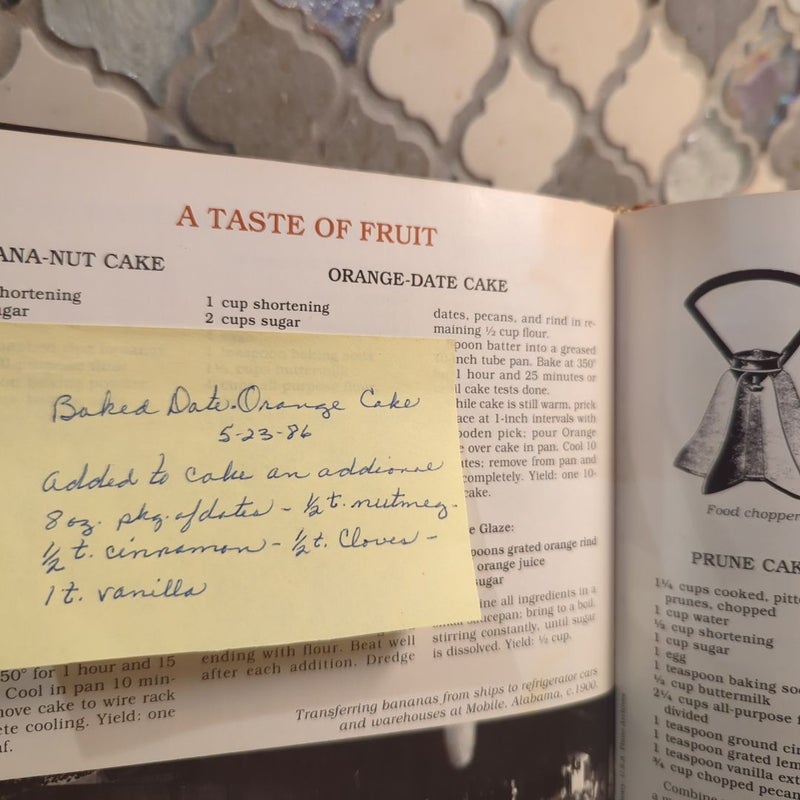 A TASTE OF FRUIT
ANA-NUT CAKE
hortening
gar
ORANGE-DATE CAKE
1 cup shortening
2 cups sugar
dates, pecans, and rind in re-
maining ½ cup flour.
poon batter into a greased
nch tube pan. Bake at 350°
1 hour and 25 minutes or
l cake tests done.
hile cake is still warm, prick
ace at 1-inch intervals with
ooden pick; pour Orange
e over cake in pan. Cool 10
utes; remove from pan and
completely. Yield: one 10-
cake.
e Glaze:
poons grated orange rind
orange juice
sugar
ine all ingredients in a
saucepan; bring to a boil,
stirring constantly, until sugar
is dissolved. Yield: ½ cup.
Baked Date-Orange Cake
5-23-86
added to cake an addional
8 oz. pkg. of dates - ½ t. nutmeg -
½ t. cinnamon - ½ t. Cloves -
1 t. vanilla
50° for 1 hour and 15
Cool in pan 10 min-
move cake to wire rack
ete cooling. Yield: one
af.
ending with flour. Beat well
after each addition. Dredge
Transferring bananas from ships to refrigerator cars
and warehouses at Mobile, Alabama, c.1900.
Food chopper
PRUNE CAK
1¼ cups cooked, pitt
prunes, chopped
1 cup water
½ cup shortening
1 cup sugar
1 egg
1 teaspoon baking so
⅓ cup buttermilk
2¼ cups all-purpose f
divided
1 teaspoon ground cin
1 teaspoon grated lem
1 teaspoon vanilla ext
¾ cup chopped pecan
Combine